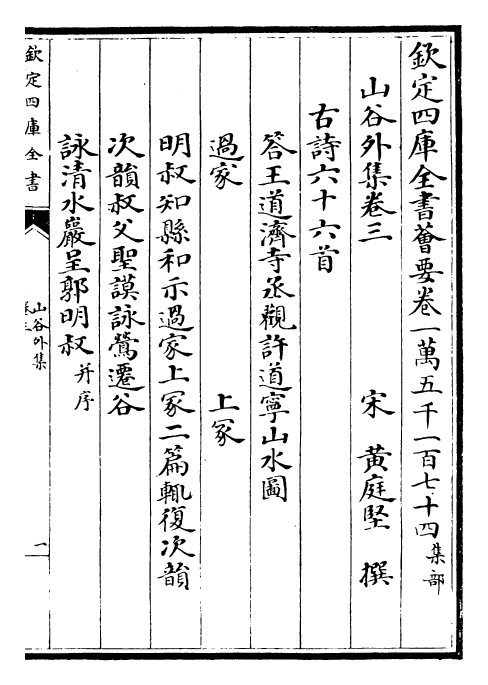 欽定四庫全書薈要卷一萬五千一百七十四集部
山谷外集卷三　宋　黃庭堅　撰
古詩六十六首
答王道濟寺丞觀許道寧山水圖
過家　上冢
明叔知縣和示過家上冢二篇輒復次韻
次韻叔父聖謨詠鶯遷谷
詠清水巖呈郭明叔并序
欽定四庫全書
山谷外集
卷三
一